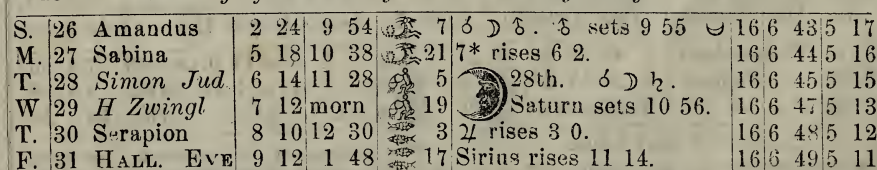 S. 26 Amandus 2 24 9 54 7 ☌ ☽ ♁. ♁ sets 9 55 16 6 43 5 17
M. 27 Sabina 5 18 10 38 21 7* rises 6 2. 16 6 44 5 16
T. 28 Simon Jud 6 14 11 28 5 28th. ☌ ☽ ♄. 16 6 45 5 15
W 29 H Zwingl 7 12 morn 19 Saturn sets 10 56. 16 6 47 5 13
T. 30 Serapion 8 10 12 30 3 ♃ rises 3 0. 16 6 48 5 12
F. 31 HALL. EVE 9 12 1 48 17 Sirius rises 11 14. 16 6 49 5 11